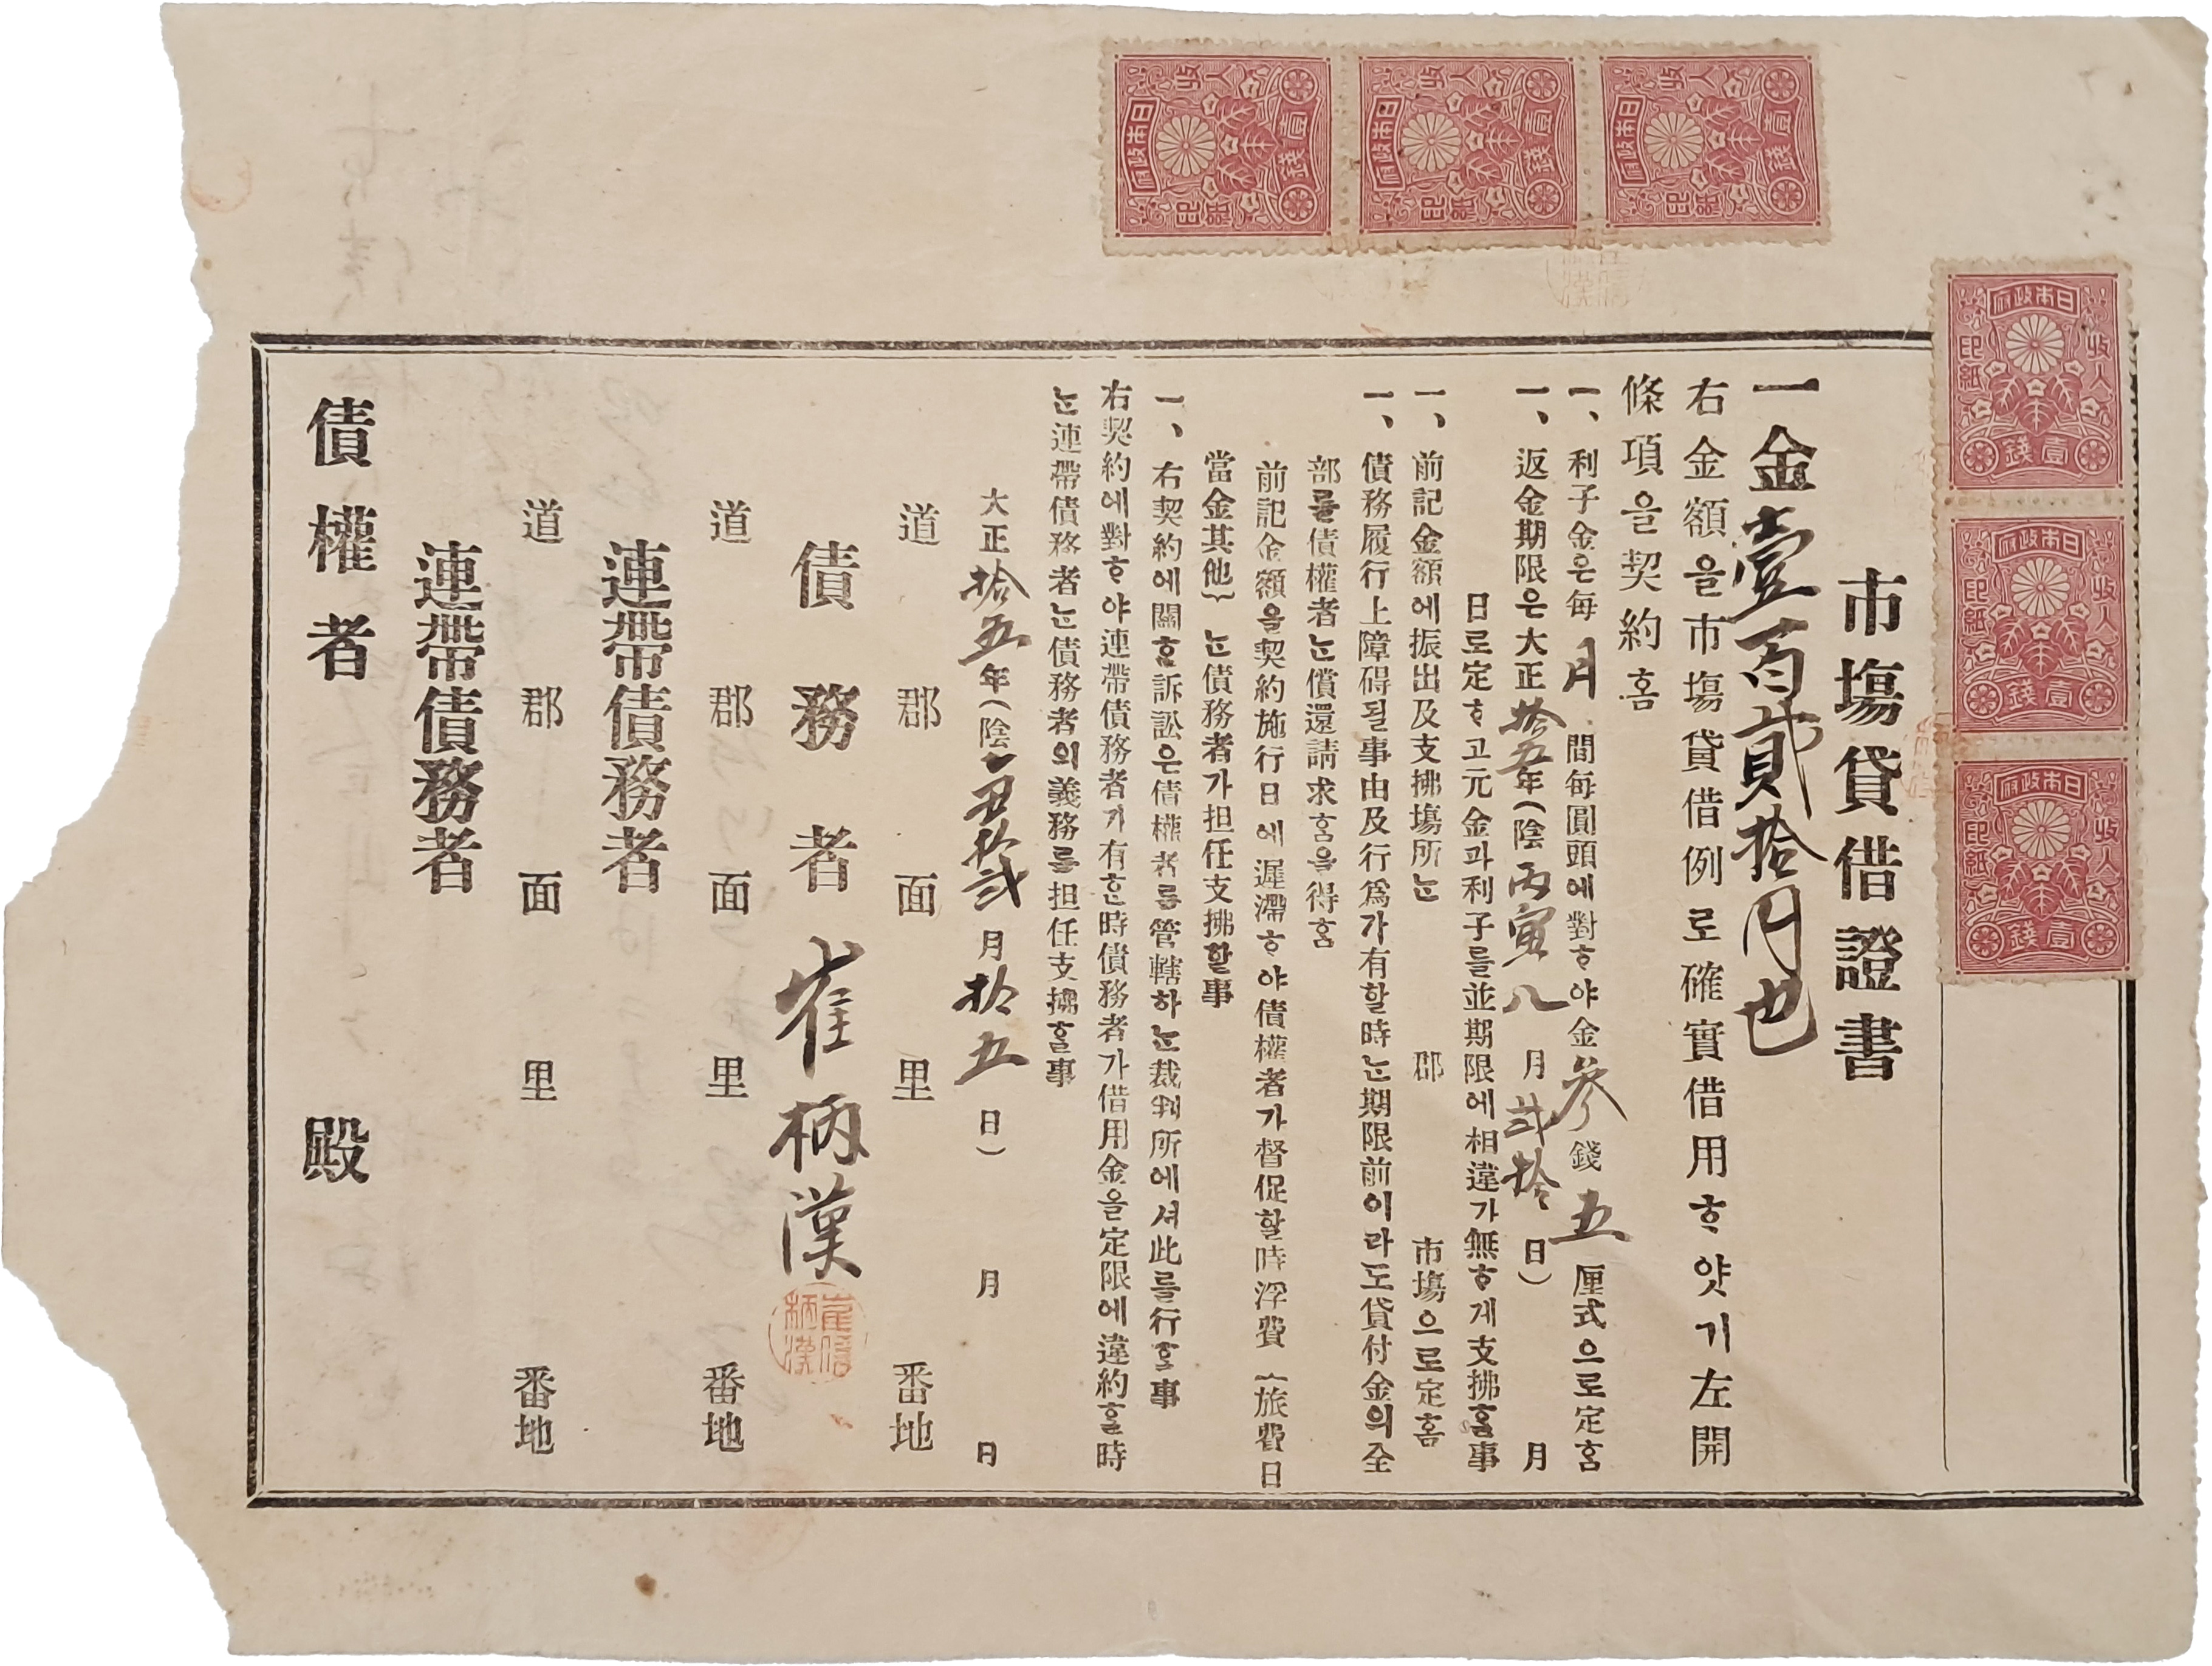 市場貸借證書
一金壹百貳拾円也
右金額을市場貸借例로確實借用ᄒᆞ얏기左開
條項을契約홈
一、利子金은每月間每圓頭에對ᄒᆞ야金參錢五厘式으로定홈
一、返金期限은大正拾五年(陰丙寅八月貳拾日) 月
日로定ᄒᆞ고元金과利子를並期限에相違가無ᄒᆞ게支拂ᄒᆞᆯ事
一、前記金額에振出及支拂場所는 郡 市場으로定홈
一、債務履行上障碍될事由及行爲가有할時는期限前이라도貸付金의全
部를債權者는償還請求홈을得홈
前記金額을契約施行日에遲滯ᄒᆞ야債權者가督促할時浮費(旅費日
當金其他)는債務者가担任支拂할事
一、右契約에關ᄒᆞᆫ訴訟은債權者를管轄하는裁判所에셔此를行ᄒᆞᆯ事
右契約에對ᄒᆞ야連帶債務者가有ᄒᆞᆫ時債務者가借用金을定限에違約ᄒᆞᆯ時
는連帶債務者는債務者의義務를担任支撥ᄒᆞᆯ事
大正拾五年(陰 丑拾貳月拾五日) 月 日
道 郡 面 里 番地
債務者 崔柄漢
道 郡 面 里 番地
連帶債務者
道 郡 面 里 番地
連帶債務者
債權者 殿
日本政府
收入印紙
壹錢
日本政府
收入印紙
壹錢
日本政府
收入印紙
壹錢
日本政府
收入印紙
壹錢
日本政府
收入印紙
壹錢
日本政府
收入印紙
壹錢